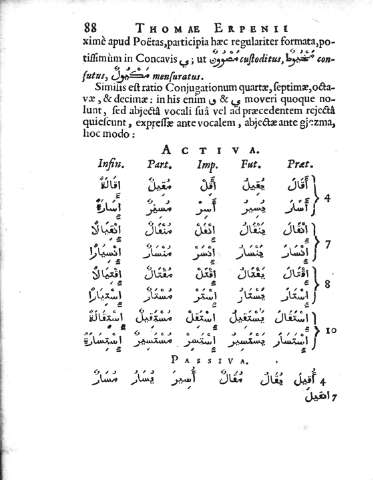 88 THOMAE ERPENII
ximè apud Poëtas, participia hæc regulariter formata, po-
tissimùm in Concavis ي; ut مَخْيُوطٌ مَصْوُونٌ custoditus, con-
sutus, مَكْيُولٌ mensuratus.
Similis est ratio Conjugationum quartæ, septimæ, octa-
væ, & decimæ: in his enim و & ي moveri quoque no-
lunt, sed abjectâ vocali suâ vel ad præcedentem rejectâ
quiescunt, expressæ ante vocalem, abjectæ ante giezma,
hoc modo:
ACTIVA.
Infin. Part. Imp. Fut. Præt.
أَقَالَ يُقِيلُ أَقِلْ مُقِيلٌ إِقَالَةٌ
أَسَارَ يُسِيرُ أَسِرْ مُسِيرٌ إِسَارَةٌ
4
إِنْقَالَ يَنْقَالُ إِنْقَلْ مُنْقَالٌ إِنْقِيَالًا
إِنْسَارَ يَنْسَارُ إِنْسَرْ مُنْسَارٌ إِنْسِيَارًا
7
إِقْتَالَ يَقْتَالُ إِقْتَلْ مُقْتَالٌ إِقْتِيَالًا
إِسْتَارَ يَسْتَارُ إِسْتَرْ مُسْتَارٌ إِسْتِيَارًا
8
إِسْتَقَالَ يَسْتَقِيلُ إِسْتَقِلْ مُسْتَقِيلٌ إِسْتِقَالَةٌ
إِسْتَسَارَ يَسْتَسِيرُ إِسْتَسِرْ مُسْتَسِيرٌ إِسْتِسَارَةٌ
10
PASSIVA.
4 أُقِيلَ يُقَالُ مُقَالٌ أُسِيرَ يُسَارُ مُسَارٌ
7 انقيل